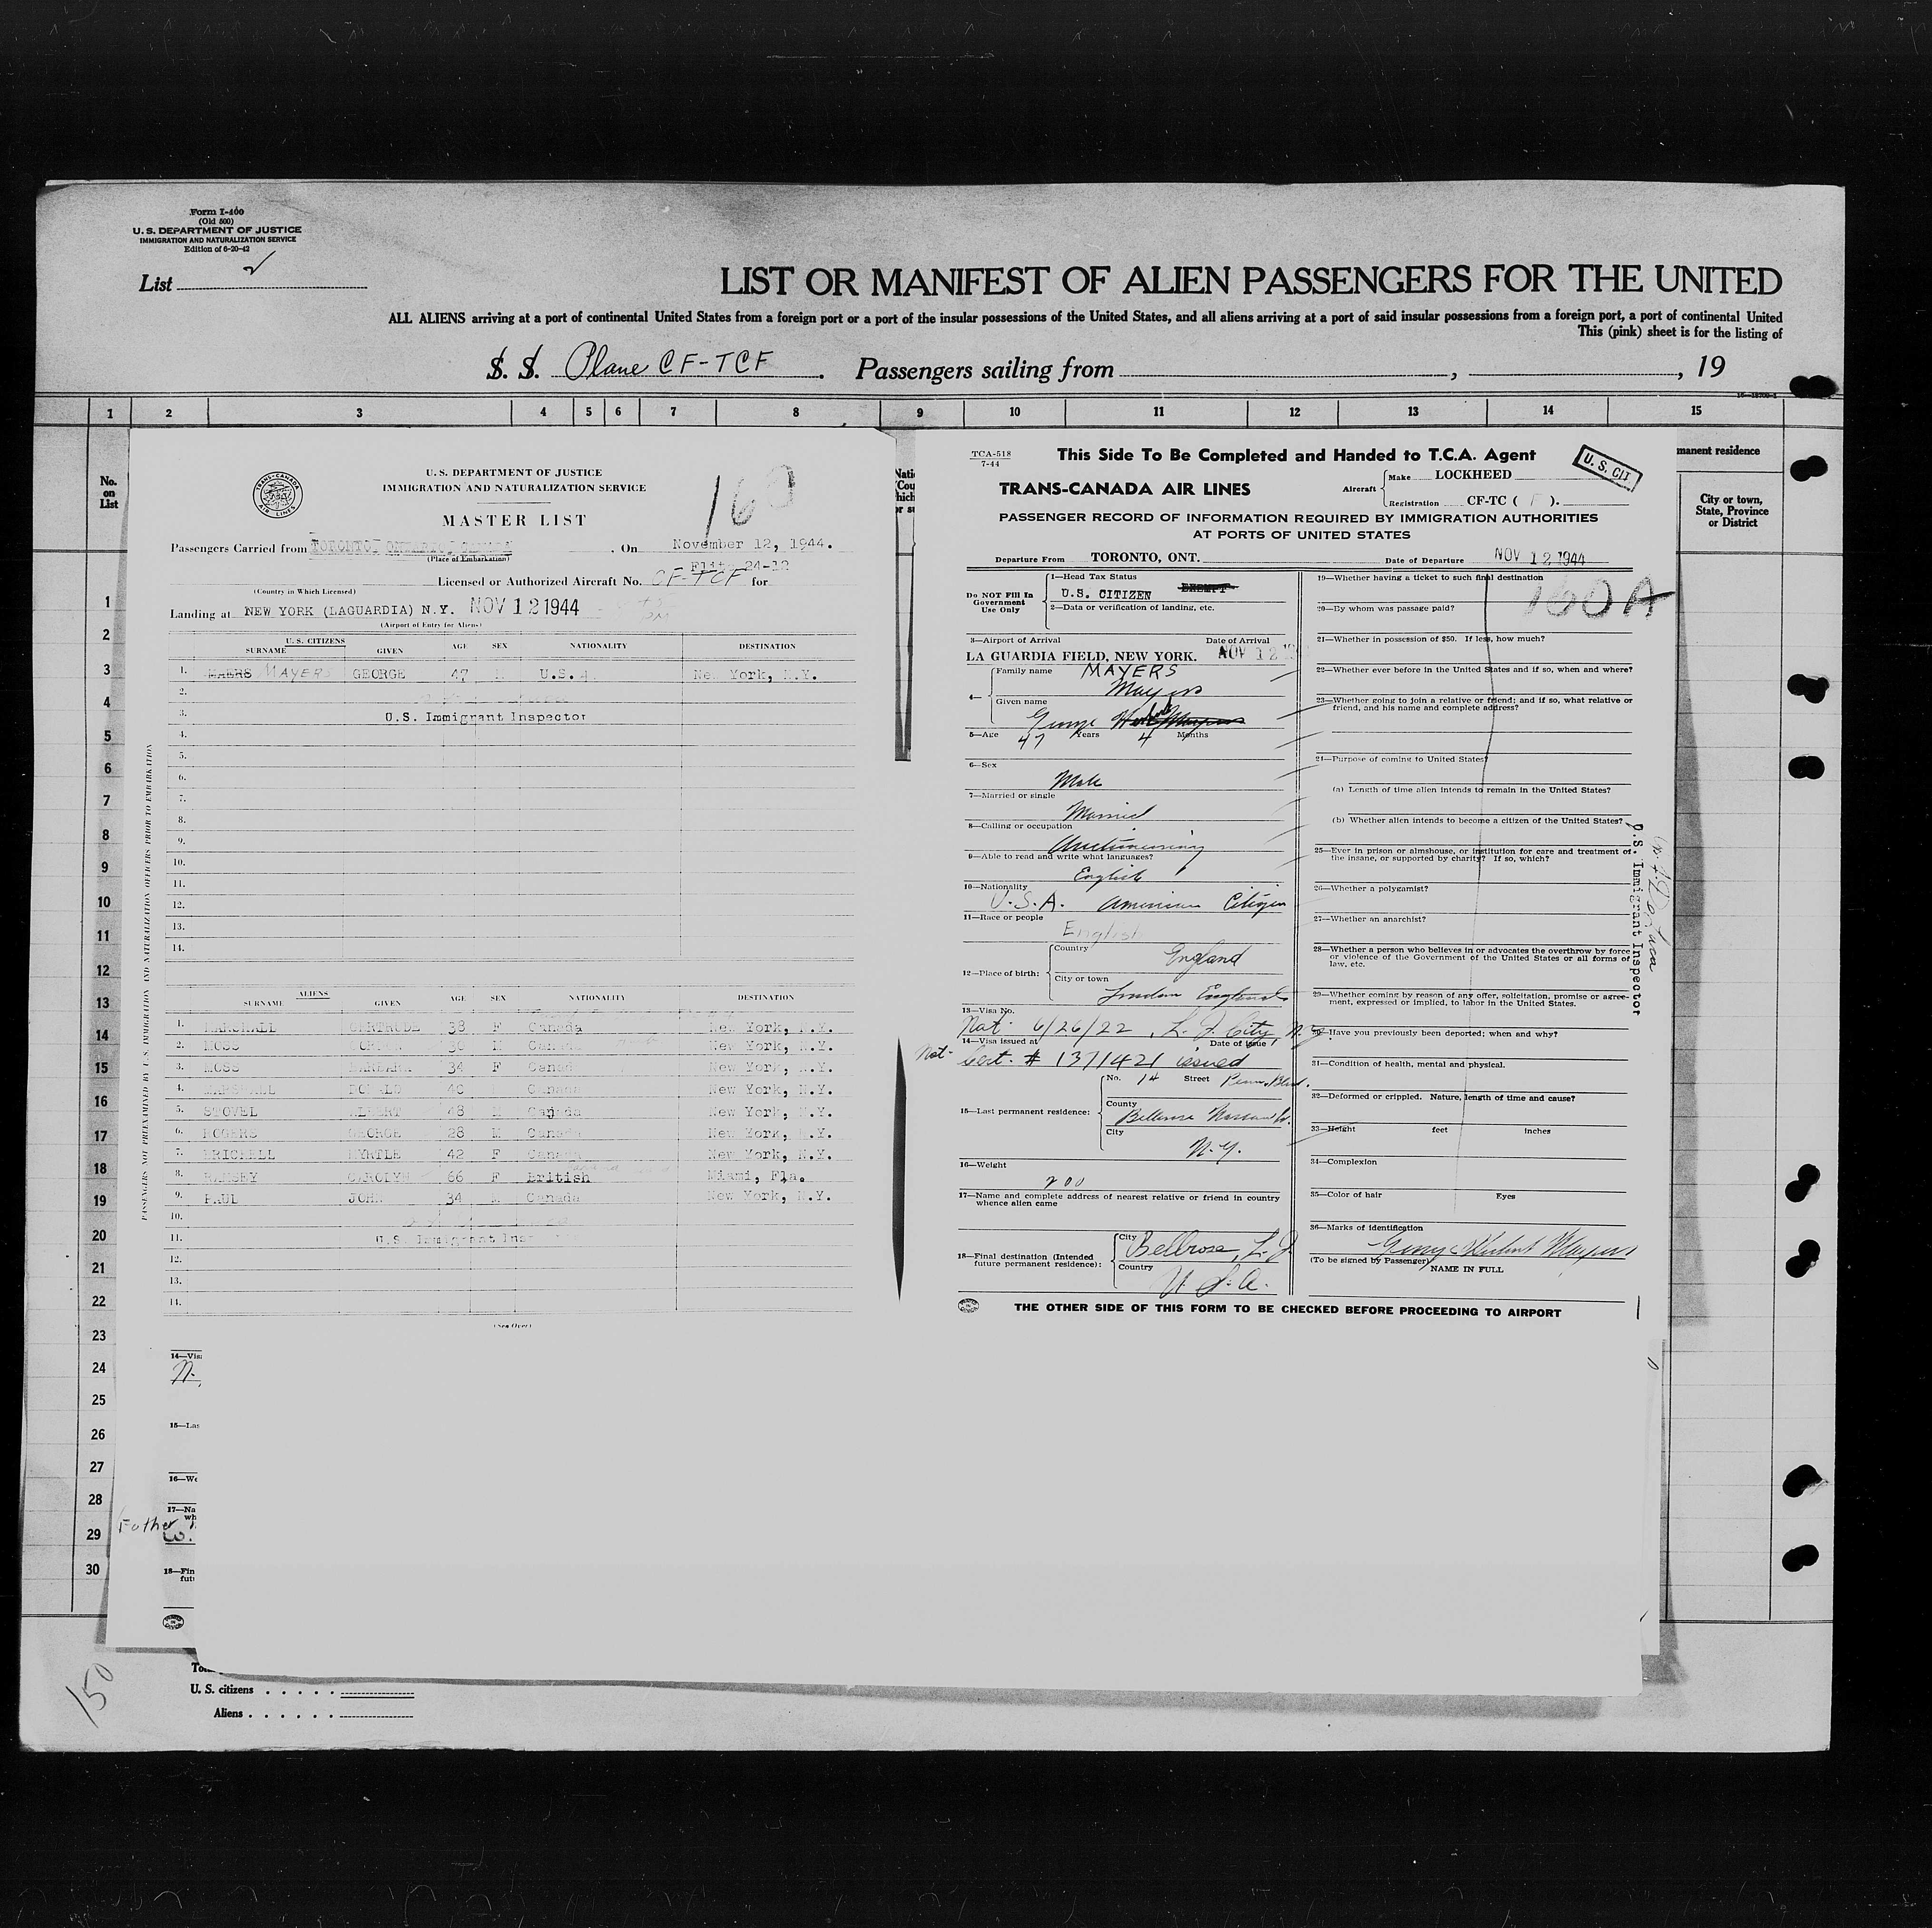 Form I-400
(Old 500)
U. S. DEPARTMENT OF JUSTICE
IMMIGRATION AND NATURALIZATION SERVICE
Edition of 6-20-42
List 2
LIST OR MANIFEST OF ALIEN PASSENGERS FOR THE UNITED
ALL ALIENS arriving at a port of continental United States from a foreign port or a port of the insular possessions of the United States, and all aliens arriving at a port of said insular possessions from a foreign port, a port of continental United
This (pink) sheet is for the listing of
S. S. Plane CF-TCF. Passengers sailing from , , 19
1 2 3 4 5 6 7 8 9 10 11 12 13 14 15
No. on List
manent residence
City or town, State, Province or District
1
2
3
4
5
6
7
8
9
10
11
12
13
14
15
16
17
18
19
20
21
22
23
24
25
26
27
28
29
30
TRANS-CANADA AIR LINES
U. S. DEPARTMENT OF JUSTICE
IMMIGRATION AND NATURALIZATION SERVICE
MASTER LIST
160
Passengers Carried from TORONTO, ONTARIO, CANADA. On November 12, 1944.
(Place of Embarkation)
Flit. 24-12
Licensed or Authorized Aircraft No. CF-TCF for
(Country in Which Licensed)
Landing at NEW YORK (LAGUARDIA) N.Y. NOV 12 1944
(Airport of Entry for Aliens)
U. S. CITIZENS
SURNAME GIVEN AGE SEX NATIONALITY DESTINATION
1. MAERS MAYERS GEORGE 47 M U.S. New York, N.Y.
2.
3. U.S. Immigrant Inspector
4.
5.
6.
7.
8.
9.
10.
11.
12.
13.
14.
PASSENGERS NOT PREEXAMINED BY U.S. IMMIGRATION AND NATURALIZATION OFFICERS PRIOR TO EMBARKATION
ALIENS
SURNAME GIVEN AGE SEX NATIONALITY DESTINATION
1. MARSHALL GERTRUDE 38 F Canada New York, N.Y.
2. MOSS GORDON 36 M Canada New York, N.Y.
3. MOSS BARBARA 34 F Canada New York, N.Y.
4. MARSHALL DONALD 40 Canada New York, N.Y.
5. STOVEL ALBERT 48 M Canada New York, N.Y.
6. ROGERS GEORGE 28 M Canada New York, N.Y.
7. BRICKELL MYRTLE 42 F Canada New York, N.Y.
8. RAMSEY CAROLYN 66 F British Miami, Fla.
9. PAUL JOHN 34 M Canada New York, N.Y.
10.
11. U.S. Immigrant Ins
12.
13.
14.
(See Over)
14—Vis
15—Las
16—We
17—Na
wh
Father
W.
18—Fin
futu
U. S. citizens
Aliens
150
TCA-518
7-44
This Side To Be Completed and Handed to T.C.A. Agent
U. S. CIT
TRANS-CANADA AIR LINES
Aircraft Make LOCKHEED
Registration CF-TC ( F ).
PASSENGER RECORD OF INFORMATION REQUIRED BY IMMIGRATION AUTHORITIES
AT PORTS OF UNITED STATES
Departure From TORONTO, ONT. Date of Departure NOV 12 1944
Do NOT Fill In Government Use Only
1—Head Tax Status EXEMPT
U.S. CITIZEN
2—Data or verification of landing, etc.
3—Airport of Arrival Date of Arrival
LA GUARDIA FIELD, NEW YORK. NOV 12 19
4— Family name MAYERS
Mayers
Given name
George
5—Age 47 Years 4 Months
6—Sex
Male
7—Married or single
Married
8—Calling or occupation
Auctioneering
9—Able to read and write what languages?
English
10—Nationality
U.S.A. American Citizen
11—Race or people
English
12—Place of birth: Country England
City or town
London England
13—Visa No.
Nat. 6/26/22, L. I. City, N.Y.
14—Visa issued at Date of issue
Nat. Cert. # 1371421 issued
15—Last permanent residence: No. 14 Street Penn. Blvd.
County
Bellerose Nassau Co.
City
N.Y.
16—Weight
200
17—Name and complete address of nearest relative or friend in country whence alien came
18—Final destination (Intended future permanent residence): City Bellrose, L. I.
Country
U. S. A.
19—Whether having a ticket to such final destination
160A
20—By whom was passage paid?
21—Whether in possession of $50. If less, how much?
22—Whether ever before in the United States and if so, when and where?
23—Whether going to join a relative or friend; and if so, what relative or friend, and his name and complete address?
24—Purpose of coming to United States?
(a) Length of time alien intends to remain in the United States?
(b) Whether alien intends to become a citizen of the United States?
25—Ever in prison or almshouse, or institution for care and treatment of the insane, or supported by charity? If so, which?
26—Whether a polygamist?
27—Whether an anarchist?
28—Whether a person who believes in or advocates the overthrow by force or violence of the Government of the United States or all forms of law, etc.
29—Whether coming by reason of any offer, solicitation, promise or agreement, expressed or implied, to labor in the United States.
30—Have you previously been deported; when and why?
31—Condition of health, mental and physical.
32—Deformed or crippled. Nature, length of time and cause?
33—Height feet inches
34—Complexion
35—Color of hair Eyes
36—Marks of identification
George Herbert Mayers
(To be signed by Passenger) NAME IN FULL
U.S. Immigrant Inspector
THE OTHER SIDE OF THIS FORM TO BE CHECKED BEFORE PROCEEDING TO AIRPORT